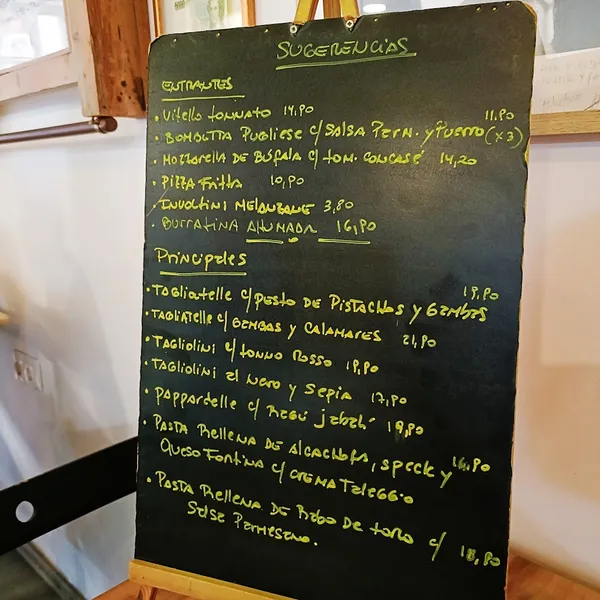 SUGERENCIAS
ENTRANTES
• Vitello tonnato 14,90
• BOMBETTA PUGLIESE c/ SALSA PARM. y PUERRO (x3) 11,90
• MOZZARELLA DE BÚFALA c/ TOM. CONCASÉ 14,20
• PIZZA FRITTA 10,90
• INVOLTINI MELANZANE 3,80
• BURRATINA AHUMADA 16,90
Principales
• TAGLIATELLE c/ PESTO DE PISTACHOS y GAMBAS 19,90
• TAGLIATELLE c/ GAMBAS y CALAMARES 21,90
• TAGLIOLINI c/ TONNO ROSSO 19,90
• TAGLIOLINI al Nero y Sepia 17,90
• pappardelle c/ RAGÚ jabalí 19,90
• PASTA Rellena DE AlCACHOFA, speck y 16,90
Queso Fontina c/ CREMA Taleggio
• PASTA Rellena DE Rabo De toro c/ 18,90
Salsa Parmesano.